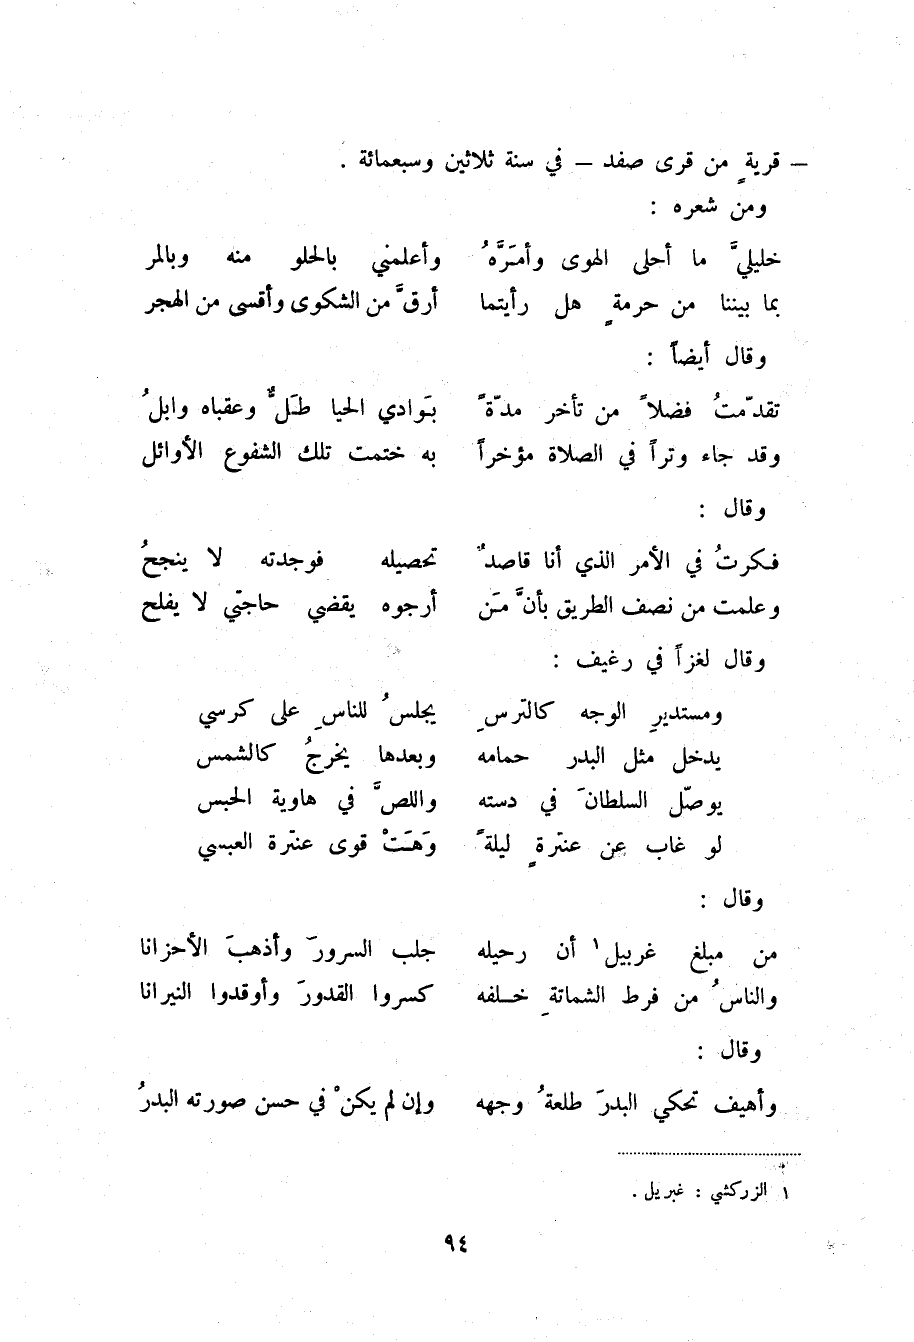 – قريةٍ من قرى صفد – في سنة ثلاثين وسبعمائة .
ومن شعره :
خليليَّ ما أحلى الهوى وأمَرَّهُ وأعلمني بالحلو منه وبالمر
بما بيننا من حرمةٍ هل رأيتما أرقَّ من الشكوى وأقسى من الهجر
وقال أيضاً :
تقدّمتُ فضلاً من تأخر مدّةً بَوادي الحيا طَلٌّ وعقباه وابلُ
وقد جاء وتراً في الصلاة مؤخراً به ختمت تلك الشفوع الأوائل
وقال :
فكرتُ في الأمر الذي أنا قاصدٌ تحصيله فوجدته لا ينجحُ
وعلمت من نصف الطريق بأنَّ مَن أرجوه يقضي حاجتي لا يفلح
وقال لغزاً في رغيف :
ومستديرِ الوجه كالترسِ يجلسُ للناسِ على كرسي
يدخل مثل البدر حمامه وبعدها يخرجُ كالشمس
يوصّل السلطانَ في دسته واللصَّ في هاوية الحبس
لو غاب عن عنترةٍ ليلةً وَهَتْ قوى عنترة العبسي
وقال :
من مبلغ غربيل١ أن رحيله جلب السرورَ وأذهبَ الأحزانا
والناسُ من فرط الشماتةِ خلفه كسروا القدورَ وأوقدوا النيرانا
وقال :
وأهيف تحكي البدرَ طلعةُ وجهه وإن لم يكنْ في حسن صورته البدرُ
١ الزركشي : غبريل .
٩٤